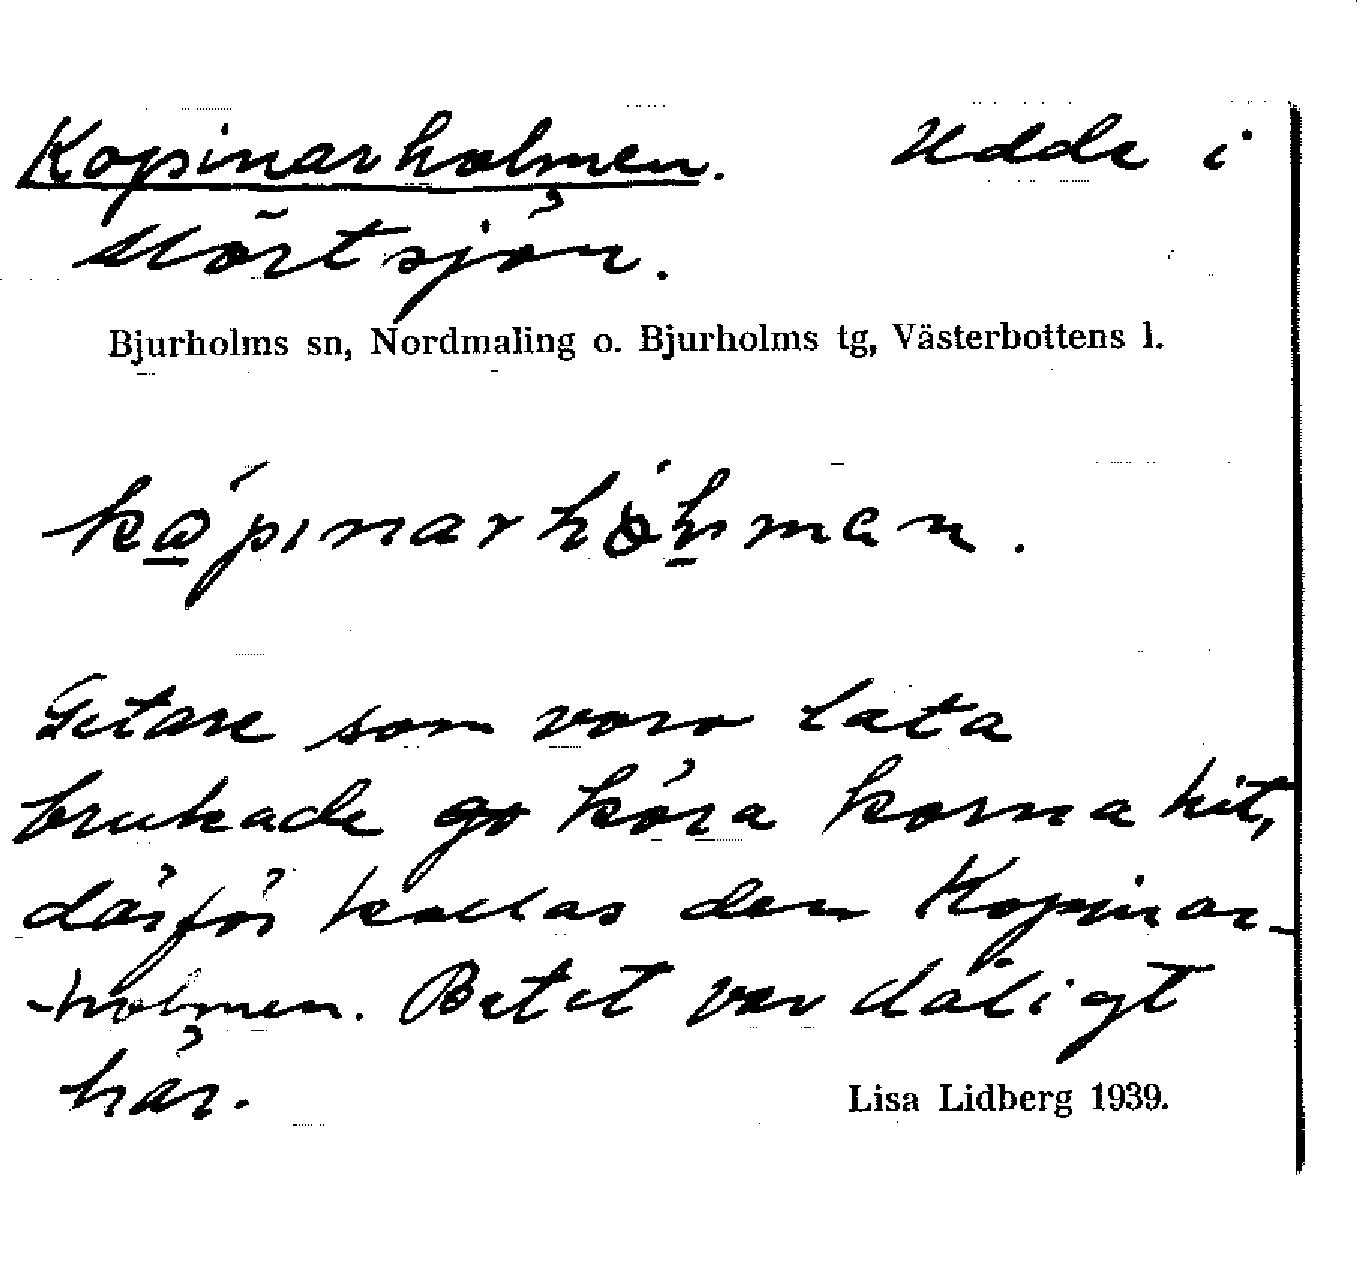 Kopinarholmen. Udde i
Mörtsjön.
Bjurholms sn, Nordmaling o. Bjurholms tg, Västerbottens l.
Getare som voro lata
brukade go köra korna hit,
därför kallas den Kopinar-
-holmen. Betet var dåligt
här.
Lisa Lidberg 1939.